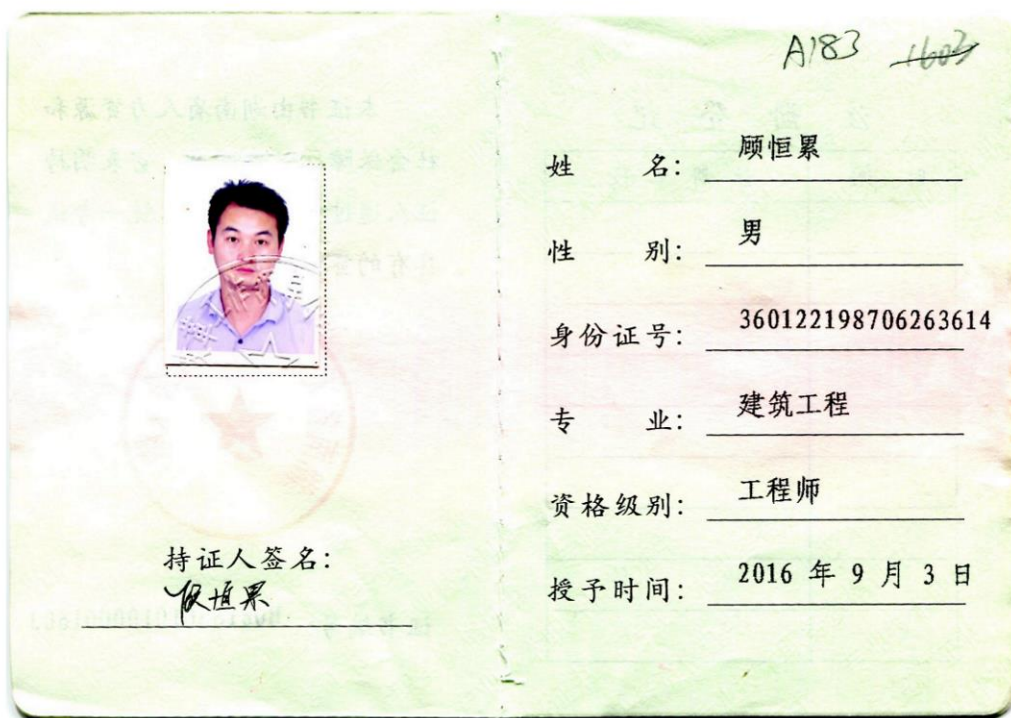 A183 1603
姓 名: 顾恒累
性 别: 男
身份证号: 360122198706263614
专 业: 建筑工程
资格级别: 工程师
授予时间: 2016 年 9 月 3 日
持证人签名: